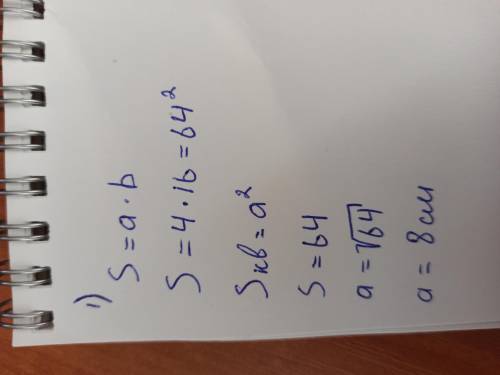 1) S = a · b
S = 4 · 16 = 64²
Sкв = a²
S = 64
a = √64
a = 8 см